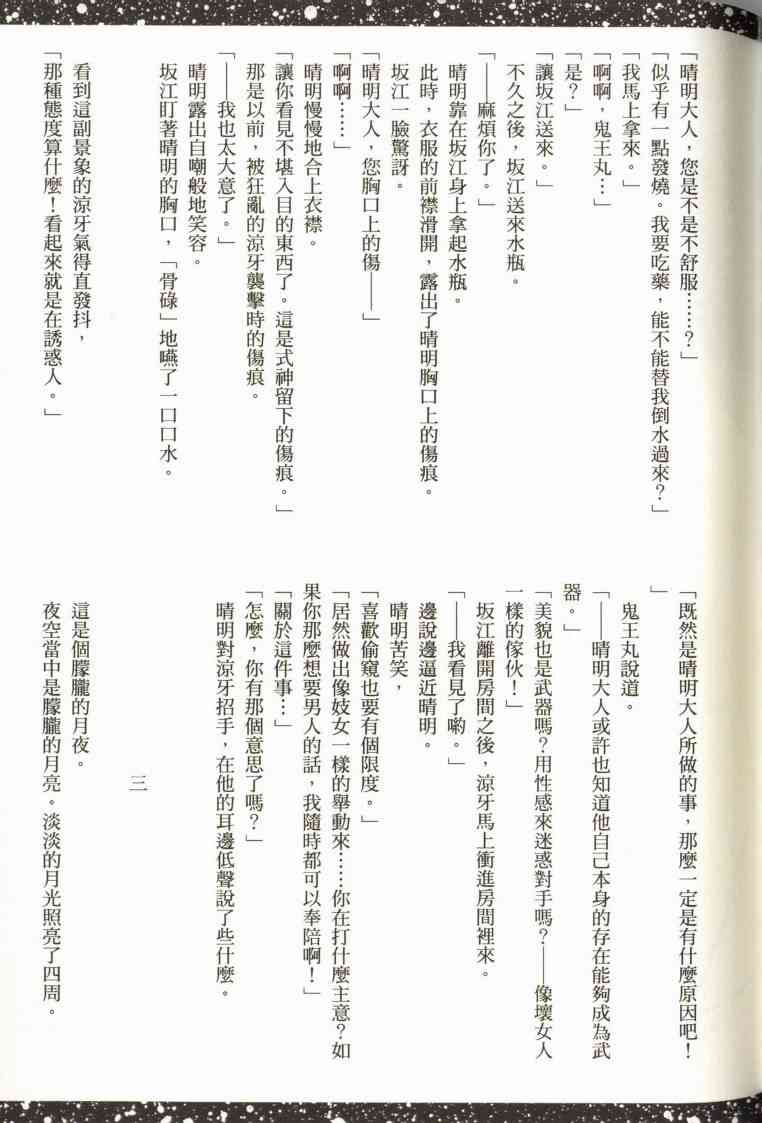 「晴明大人，您是不是不舒服……？」
「似乎有一點發燒。我要吃藥，能不能替我倒水過來？」
「我馬上拿來。」
「啊啊，鬼王丸…」
「是？」
「讓坂江送來。」
不久之後，坂江送來水瓶。
「——麻煩你了。」
晴明靠在坂江身上拿起水瓶。
此時，衣服的前襟滑開，露出了晴明胸口上的傷痕。
坂江一臉驚訝。
「晴明大人，您胸口上的傷——」
「啊啊……」
晴明慢慢地合上衣襟。
「讓你看見不堪入目的東西了。這是式神留下的傷痕。」
那是以前，被狂亂的涼牙襲擊時的傷痕。
「——我也太大意了。」
晴明露出自嘲般地笑容。
坂江盯著晴明的胸口，「骨碌」地嚥了一口口水。
看到這副景象的涼牙氣得直發抖，
「那種態度算什麼！看起來就是在誘惑人。」
「既然是晴明大人所做的事，那麼一定是有什麼原因吧！
」
鬼王丸說道。
「——晴明大人或許也知道他自己本身的存在能夠成為武
器。」
「美貌也是武器嗎？用性感來迷惑對手嗎？——像壞女人
一樣的傢伙！」
坂江離開房間之後，涼牙馬上衝進房間裡來。
「——我看見了喲。」
邊說邊逼近晴明。
晴明苦笑，
「喜歡偷窺也要有個限度。」
「居然做出像妓女一樣的舉動來……你在打什麼主意？如
果你那麼想要男人的話，我隨時都可以奉陪啊！」
「關於這件事…」
「怎麼，你有那個意思了嗎？」
晴明對涼牙招手，在他的耳邊低聲說了些什麼。
三
這是個朦朧的月夜。
夜空當中是朦朧的月亮。淡淡的月光照亮了四周。